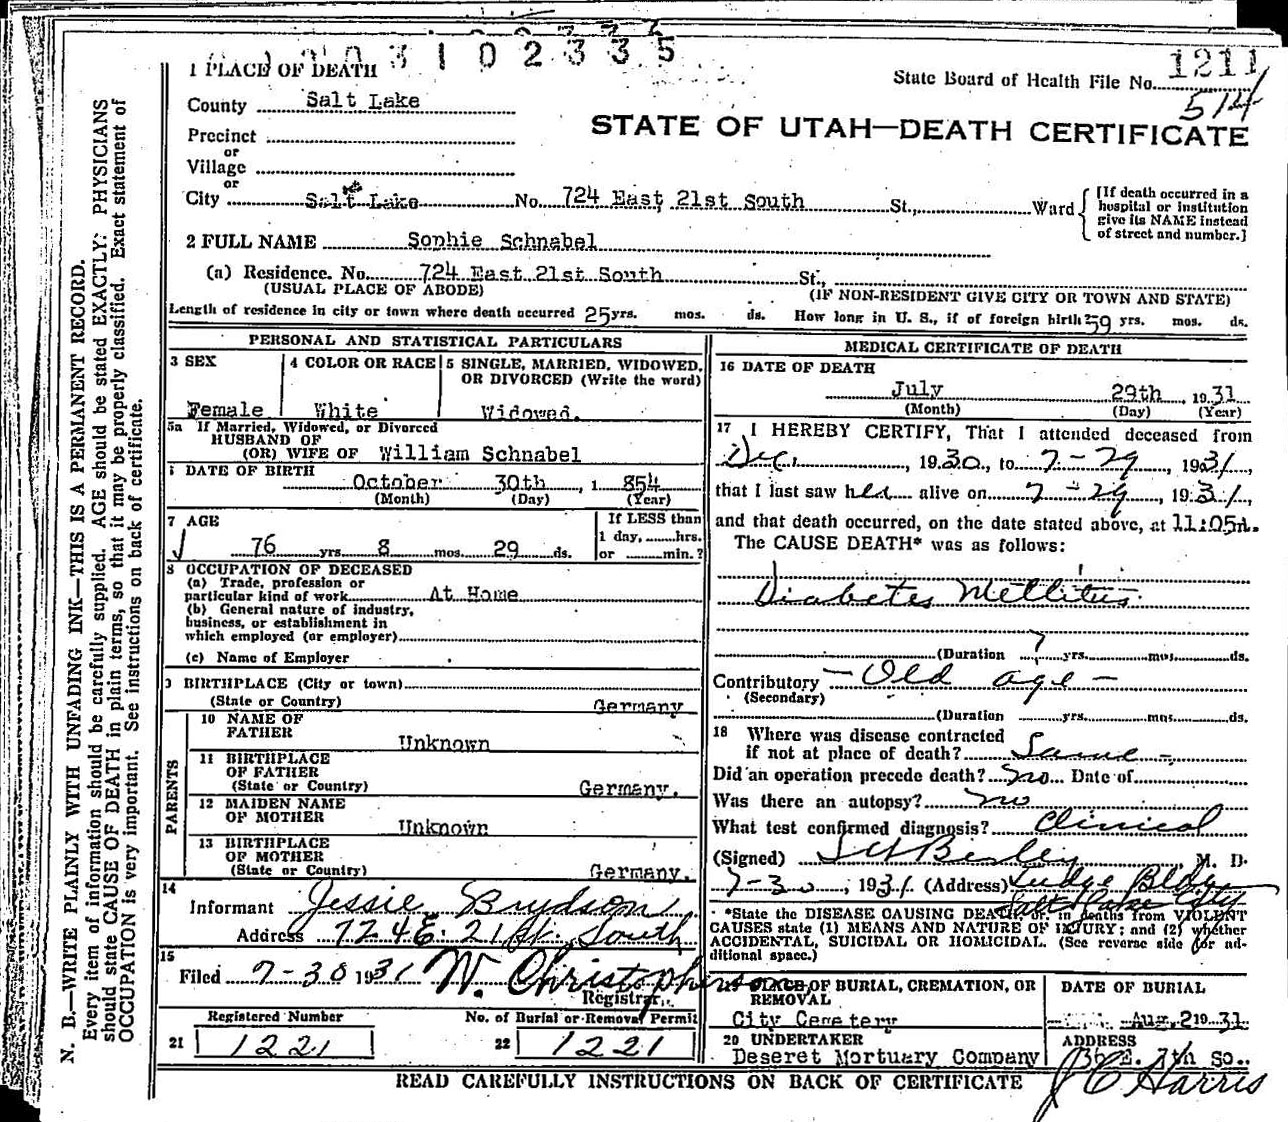 3102335
1 PLACE OF DEATH
State Board of Health File No. 1211
514
County Salt Lake
STATE OF UTAH—DEATH CERTIFICATE
Precinct
or
Village
or
City Salt Lake No. 724 East 21st South St., Ward
[If death occurred in a
hospital or institution
give its NAME instead
of street and number.]
2 FULL NAME Sophie Schnabel
(a) Residence. No. 724 East 21st South St.,
(USUAL PLACE OF ABODE) (IF NON-RESIDENT GIVE CITY OR TOWN AND STATE)
Length of residence in city or town where death occurred 25 yrs. mos. ds. How long in U. S., if of foreign birth? 59 yrs. mos. ds.
PERSONAL AND STATISTICAL PARTICULARS
3 SEX
Female
4 COLOR OR RACE
White
5 SINGLE, MARRIED, WIDOWED,
OR DIVORCED (Write the word)
Widowed.
5a If Married, Widowed, or Divorced
HUSBAND OF
(OR) WIFE OF William Schnabel
DATE OF BIRTH
October 30th, 1 854
(Month) (Day) (Year)
7 AGE
76 yrs. 8 mos. 29 ds.
If LESS than
1 day, hrs.
or min.?
8 OCCUPATION OF DECEASED
(a) Trade, profession or
particular kind of work At Home
(b) General nature of industry,
business, or establishment in
which employed (or employer)
(c) Name of Employer
BIRTHPLACE (City or town)
(State or Country) Germany
PARENTS
10 NAME OF
FATHER Unknown
11 BIRTHPLACE
OF FATHER
(State or Country) Germany.
12 MAIDEN NAME
OF MOTHER Unknown
13 BIRTHPLACE
OF MOTHER
(State or Country) Germany.
14
Informant Jessie Brydson
Address 724 E. 21st. South
15
Filed 7-30 1931 W. Christopherson
Registrar.
Registered Number
21 1221
No. of Burial or Removal Permit
22 1221
MEDICAL CERTIFICATE OF DEATH
16 DATE OF DEATH
July 29th, 1931
(Month) (Day) (Year)
17 I HEREBY CERTIFY, That I attended deceased from
Dec, 1930, to 7-29, 1931,
that I last saw her alive on 7-29, 1931,
and that death occurred, on the date stated above, at 11:05
The CAUSE DEATH* was as follows:
Diabetes Mellitus
(Duration yrs. mos. ds.
Contributory — Old age —
(Secondary)
(Duration yrs. mos. ds.
18 Where was disease contracted
if not at place of death? Same —
Did an operation precede death? no Date of
Was there an autopsy? no
What test confirmed diagnosis? Clinical
(Signed) M. D.
7-30, 1931. (Address) Judge Bldg
Salt Lake City
*State the DISEASE CAUSING DEATH, or, in deaths from VIOLENT
CAUSES state (1) MEANS AND NATURE OF INJURY; and (2) whether
ACCIDENTAL, SUICIDAL OR HOMICIDAL. (See reverse side for ad-
ditional space.)
19 PLACE OF BURIAL, CREMATION, OR
REMOVAL
City Cemetery
DATE OF BURIAL
Aug. 2 1931
20 UNDERTAKER
Deseret Mortuary Company
ADDRESS
36 E. 7th So.
J C Harris
READ CAREFULLY INSTRUCTIONS ON BACK OF CERTIFICATE
N. B.—WRITE PLAINLY WITH UNFADING INK—THIS IS A PERMANENT RECORD.
Every item of information should be carefully supplied. AGE should be stated EXACTLY. PHYSICIANS
should state CAUSE OF DEATH in plain terms, so that it may be properly classified. Exact statement of
OCCUPATION is very important. See instructions on back of certificate.